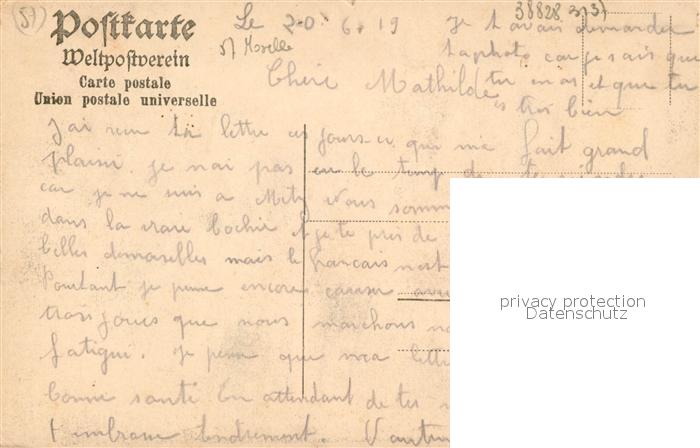 57)
Postkarte
Weltpostverein
Carte postale
Union postale universelle
57 Moselle
38828
Le 20 6 19
Je t'avais demander
ta photo car je sais que
tu en as et que tu
es très bien
Chéri Mathilde
J'ai reçu ta lettre ces jours-ci qui m'a fait grand
plaisir. je n'ai pas eu le temps de te
car je ne suis a Metz Nous somm
dans la vrare bochie et je te pris de
belles demoiselles mais le français n'est
Pourtant je pense encore causer
trois jours que nous marchons
fatigué. Je pense que ma lettre
bonne santé En attendant de tes
t'embrasse tendrement.
privacy protection
Datenschutz